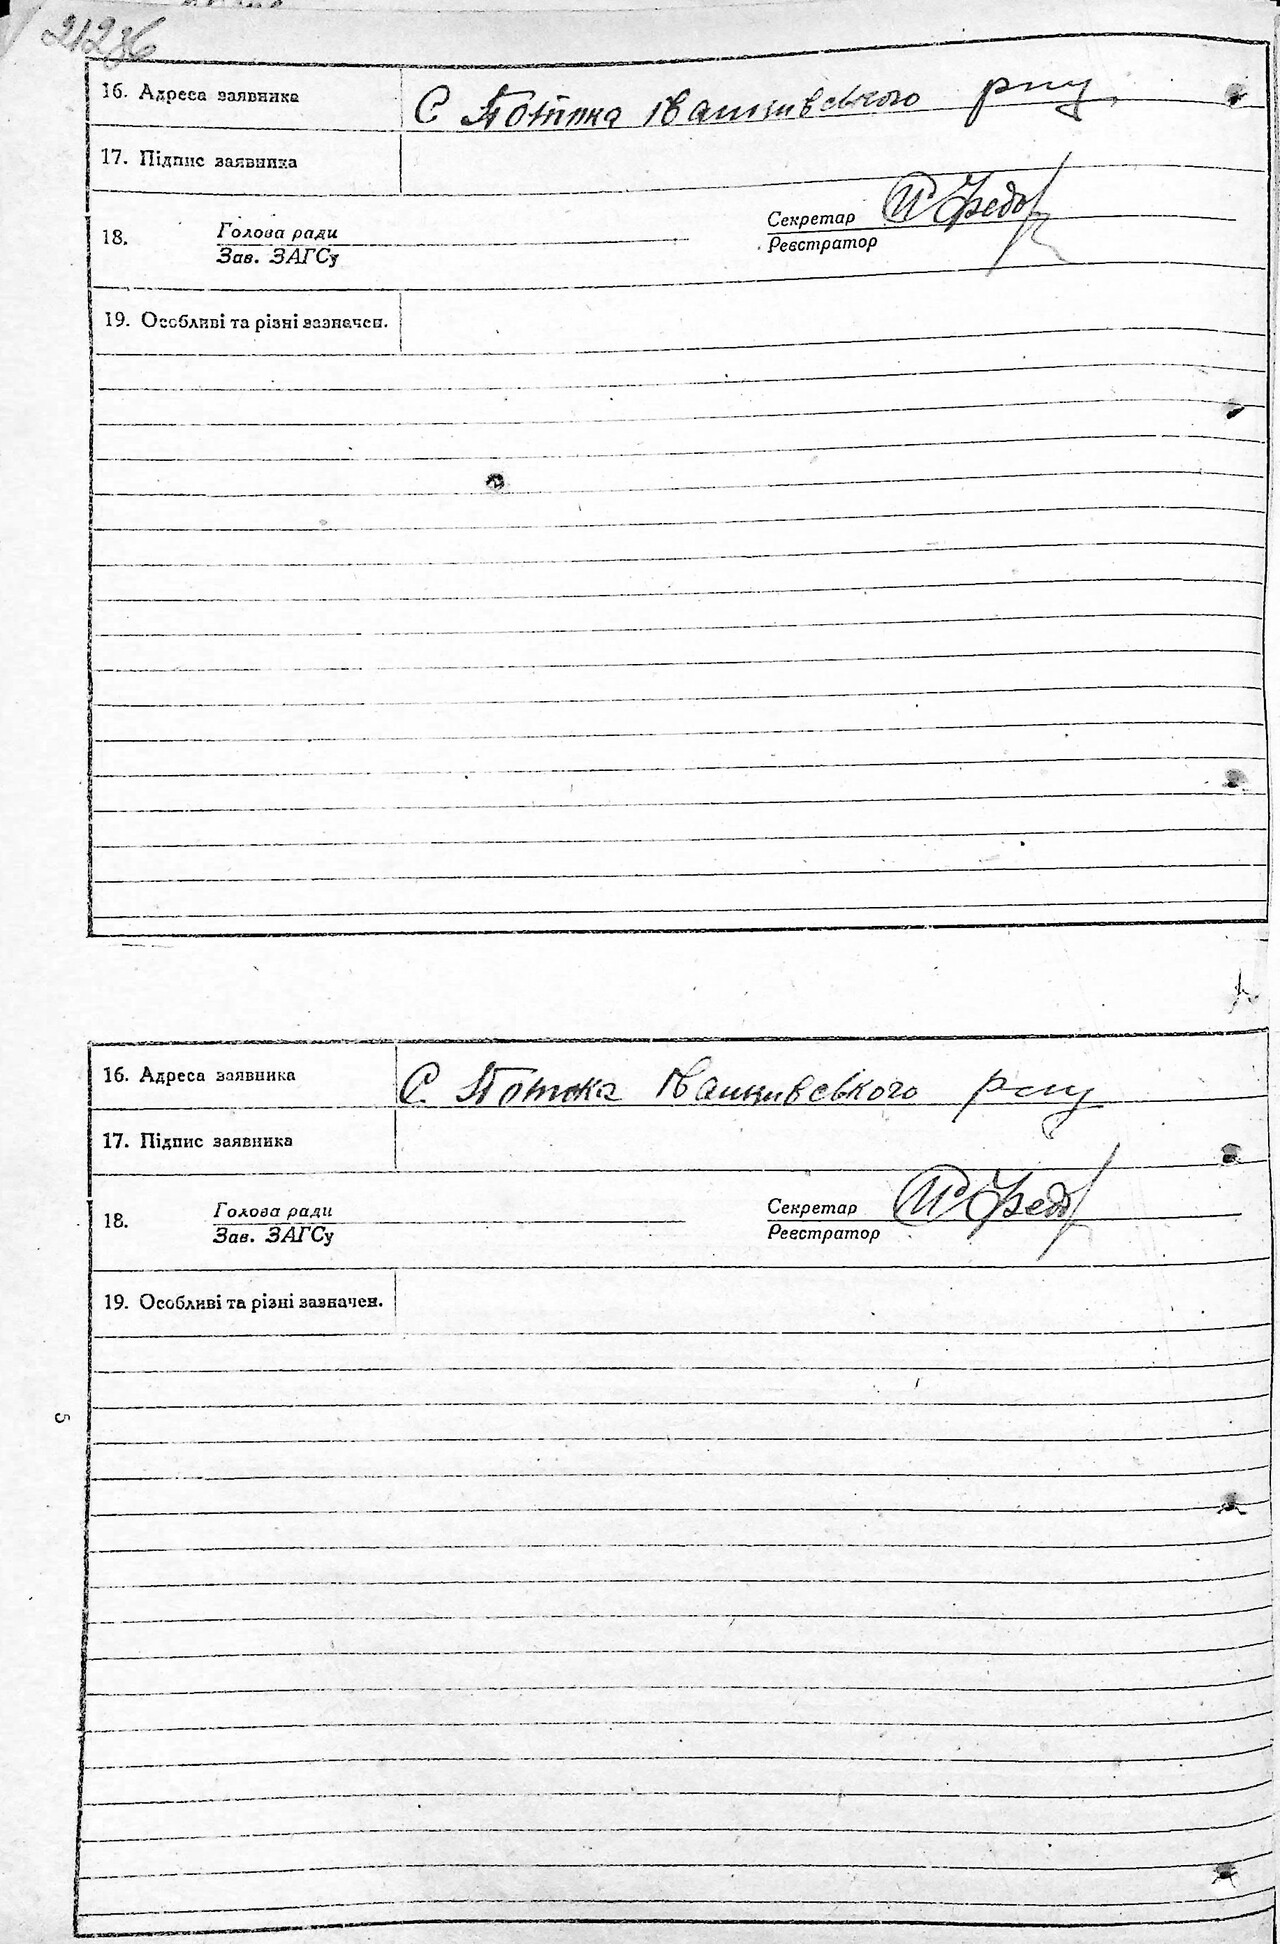 21236
16. Адреса заявника С Потока Ямпилвського рну
17. Підпис заявника
Секретар
18. Голова ради
Реєстратор
Зав. ЗАГСу
19. Особливі та різні зазначен.
16. Адреса заявника С. Потока
17. Підпис заявника
18. Голова ради Секретар
Зав. ЗАГСу Реєстратор
19. Особливі та різні зазначен.
5